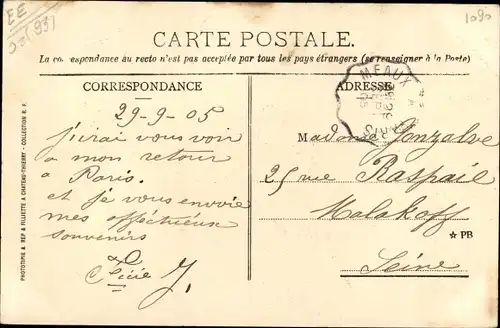 EE
1090
CARTE POSTALE.
La correspondance au recto n'est pas acceptée par tous les pays étrangers (se renseigner à la Poste)
CORRESPONDANCE
29-9-05
J'irai vous voir
a mon retour
a Paris.
et je vous envoie
mes affectueux
souvenirs
J.
ADRESSE
MEAUX
Madame Gonzalve
25 rue Raspail
Malakoff
☆ PB
Seine
PHOTOTYPIE A. REP & FILLIETTE A CHATEAU-THIERRY - COLLECTION R. F.